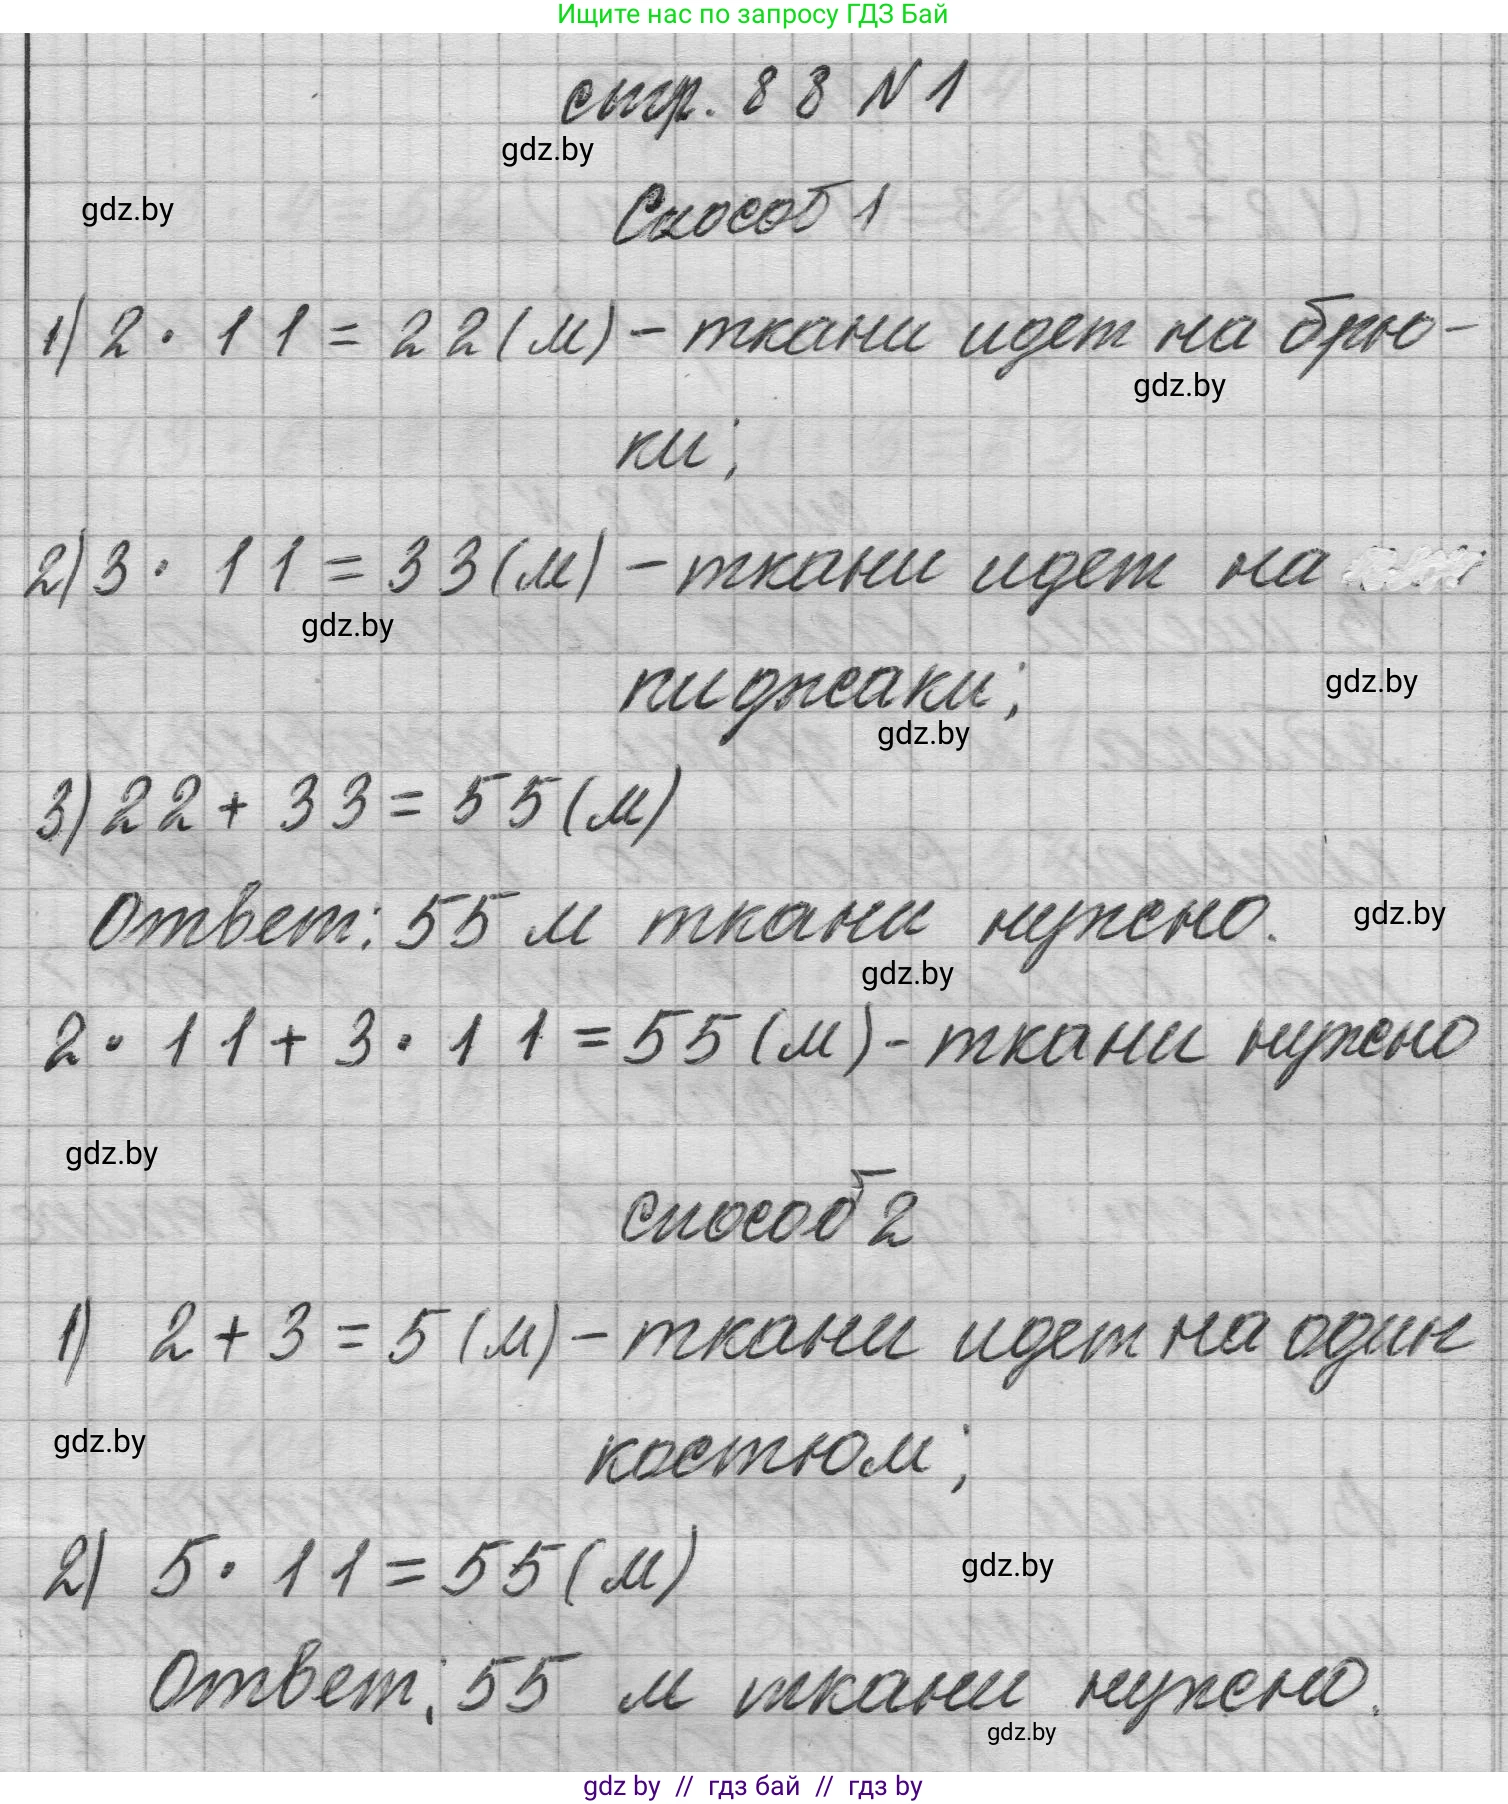 Ищите нас по запросу ГДЗ Бай
стр. 88 N 1
gdz.by
gdz.by
Способ 1
1) 2 · 11 = 22 (м) - ткани идет на брю-
gdz.by
ки;
2) 3 · 11 = 33 (м) - ткани идет на
gdz.by
пиджаки;
gdz.by
gdz.by
3) 22 + 33 = 55 (м)
Ответ: 55 м ткани нужно.
gdz.by
gdz.by
2 · 11 + 3 · 11 = 55 (м) - ткани нужно
gdz.by
способ 2
1) 2 + 3 = 5 (м) - ткани идет на один
gdz.by
костюм;
2) 5 · 11 = 55 (м)
gdz.by
Ответ: 55 м ткани нужно.
gdz.by
gdz by // гдз бай // гдз by